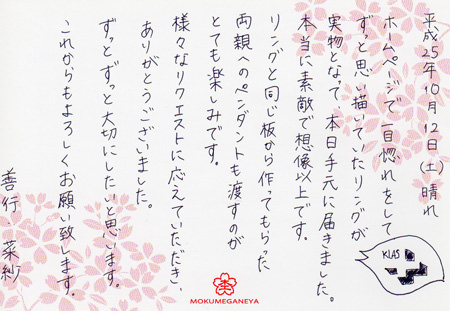 平成25年10月12日(土) 晴れ
ホームページで一目惚れをして
ずっと思い描いていたリングが
実物となって、本日手元に届きました。
本当に素敵で想像以上です。
リングと同じ板から作ってもらった
両親へのペンダントも渡すのが
とても楽しみです。
様々なリクエストに応えていただき、
ありがとうございました。
ずっとずっと大切にしたいと思います。
これからもよろしくお願い致します。
善行・菜紗
KLAS
杢
MOKUMEGANEYA